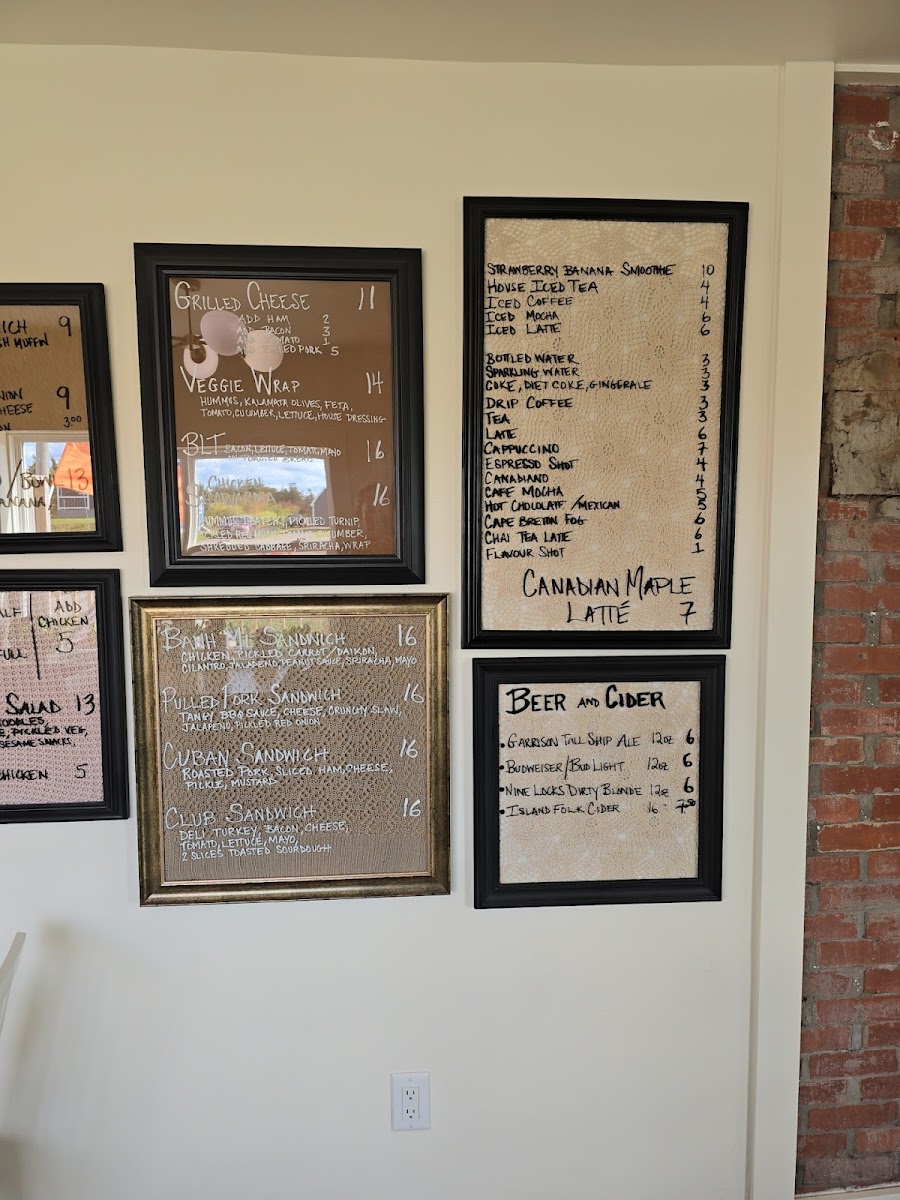 ICH 9
SH MUFFIN
9
CHEESE
3.00
13
ANANA
ALF
ADD
CHICKEN
FULL 5
SALAD 13
NOODLES,
PICKLED VEG,
SESAME SNACKS,
CHICKEN 5
GRILLED CHEESE 11
ADD HAM 2
ADD BACON 3
TOMATO 1
PORK 5
VEGGIE WRAP 14
HUMMUS, KALAMATA OLIVES, FETA,
TOMATO, CUCUMBER, LETTUCE, HOUSE DRESSING
BLT BACON, LETTUCE, TOMATO, MAYO
ON TOASTED BREAD 16
CHICKEN
SHAWARMA 16
PICKLED TURNIP,
SHREDDED CABBAGE, SRIRACHA, WRAP
BANH MI SANDWICH 16
CHICKEN, PICKLED CARROT/DAIKON,
CILANTRO, JALAPENO, PEANUT SAUCE, SRIRACHA, MAYO
PULLED PORK SANDWICH 16
TANGY BBQ SAUCE, CHEESE, CRUNCHY SLAW,
JALAPENO, PICKLED RED ONION
CUBAN SANDWICH 16
ROASTED PORK, SLICED HAM, CHEESE,
PICKLE, MUSTARD
CLUB SANDWICH 16
DELI TURKEY, BACON, CHEESE,
TOMATO, LETTUCE, MAYO,
2 SLICES TOASTED SOURDOUGH
STRAWBERRY BANANA SMOOTHIE 10
HOUSE ICED TEA 4
ICED COFFEE 4
ICED MOCHA 6
ICED LATTE 6
BOTTLED WATER 3
SPARKLING WATER 3
COKE, DIET COKE, GINGERALE 3
DRIP COFFEE 3
TEA 3
LATTE 6
CAPPUCCINO 7
ESPRESSO SHOT 4
CANADIANO 4
CAFE MOCHA 5
HOT CHOCOLATE /MEXICAN 5
CAPE BRETON FOG 6
CHAI TEA LATTE 6
FLAVOUR SHOT 1
CANADIAN MAPLE
LATTÉ 7
BEER AND CIDER
• GARRISON TALL SHIP ALE 12oz 6
• BUDWEISER/BUD LIGHT 12oz 6
• NINE LOCKS DIRTY BLONDE 12oz 6
• ISLAND FOLK CIDER 16 - 7.50